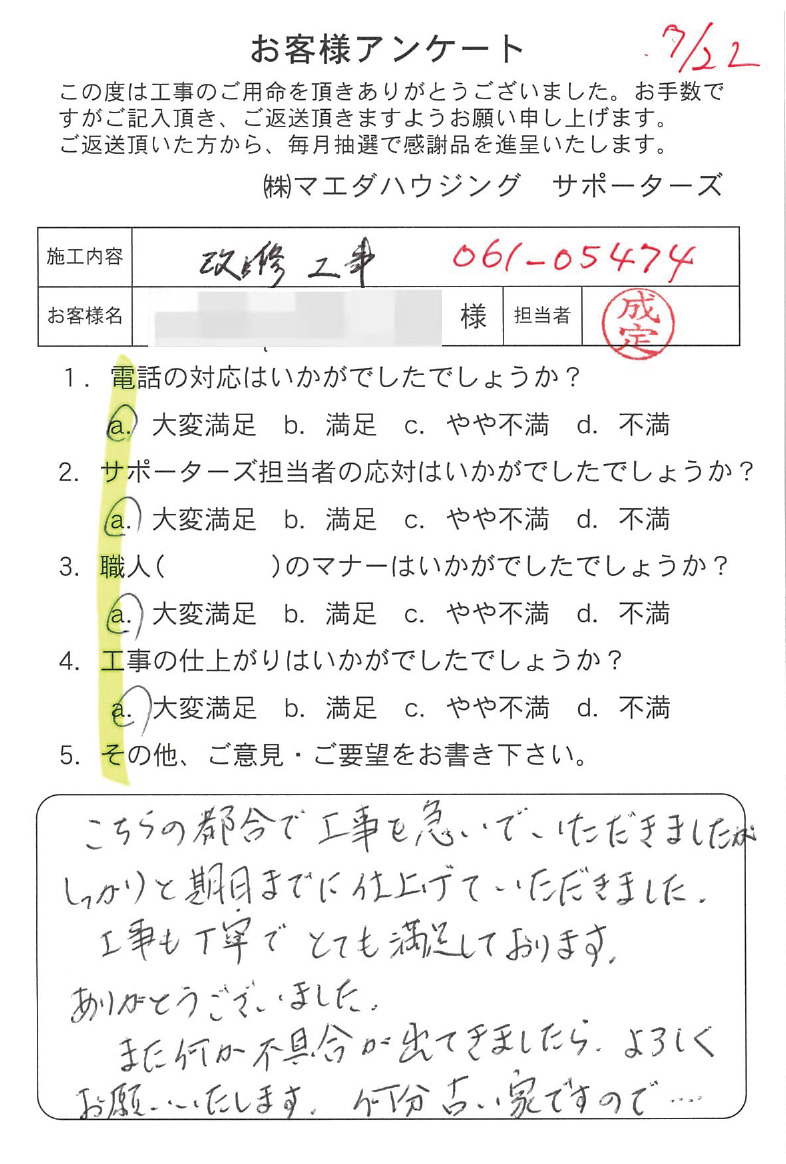 お客様アンケート
7/22
この度は工事のご用命を頂きありがとうございました。お手数で
すがご記入頂き、ご返送頂きますようお願い申し上げます。
ご返送頂いた方から、毎月抽選で感謝品を進呈いたします。
㈱マエダハウジング サポーターズ
施工内容 改修工事 061-05474
お客様名 様 担当者 成定
1. 電話の対応はいかがでしたでしょうか?
a. 大変満足 b. 満足 c. やや不満 d. 不満
2. サポーターズ担当者の応対はいかがでしたでしょうか?
a. 大変満足 b. 満足 c. やや不満 d. 不満
3. 職人( )のマナーはいかがでしたでしょうか?
a. 大変満足 b. 満足 c. やや不満 d. 不満
4. 工事の仕上がりはいかがでしたでしょうか?
a. 大変満足 b. 満足 c. やや不満 d. 不満
5. その他、ご意見・ご要望をお書き下さい。
こちらの都合で工事を急いでいただきましたが
しっかりと期日までに仕上げていただきました.
工事も丁寧でとても満足しております.
ありがとうございました.
また何か不具合が出てきましたら.よろしく
お願いいたします. 何分古い家ですので……